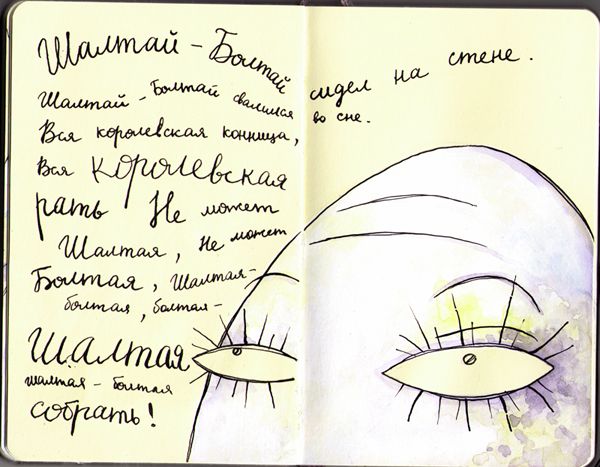 Шалтай - Болтай сидел на стене.
Шалтай - Болтай свалился во сне.
Вся королевская конница,
Вся королевская
рать Не может
Шалтая, Не может
Болтая, Шалтая-
болтая, болтая-
Шалтая
шалтая - болтая
собрать!